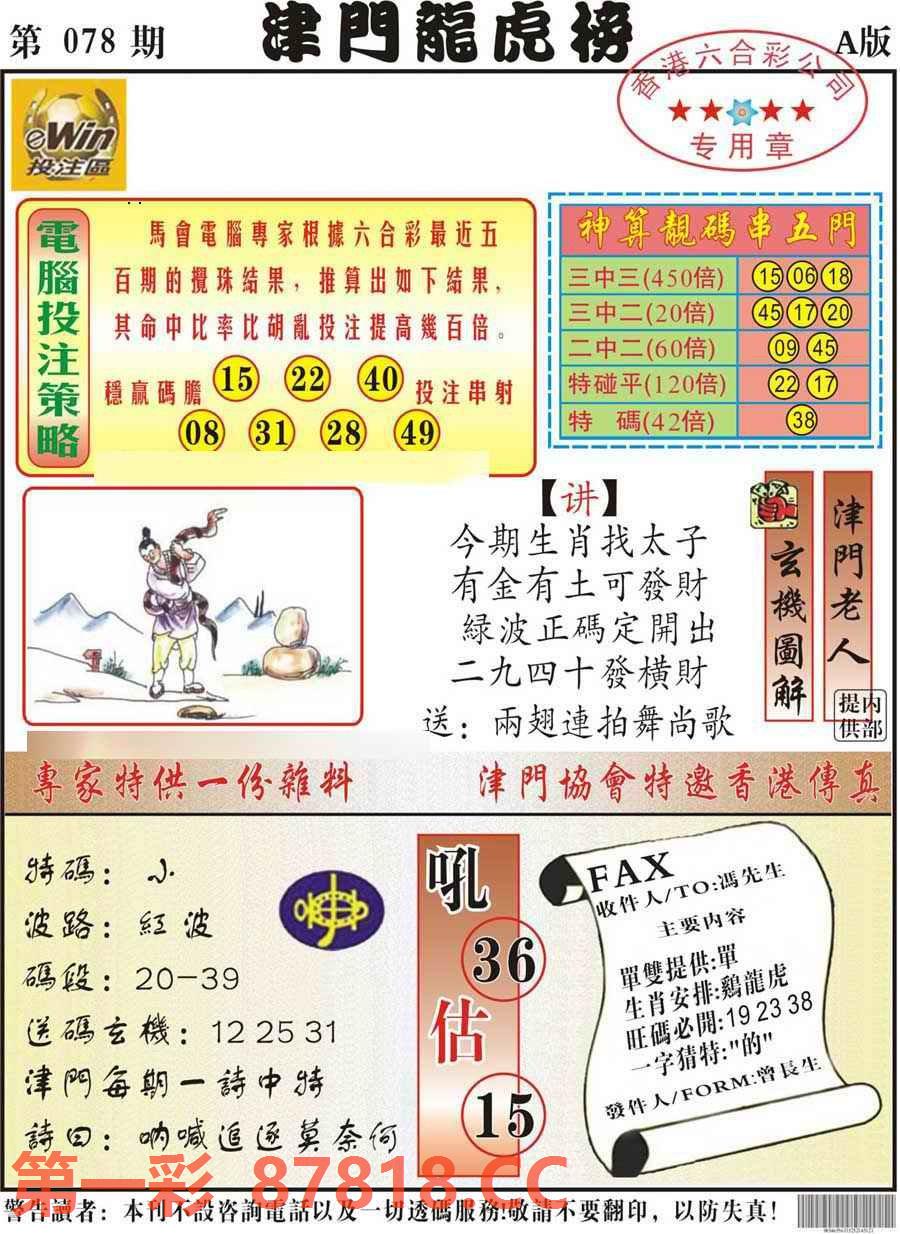 第 078 期
津門龍虎榜
A版
香港六合彩公司
专用章
eWin
投注區
電腦投注策略
馬會電腦專家根據六合彩最近五
百期的攪珠結果，推算出如下結果，
其命中比率比胡亂投注提高幾百倍。
穩贏碼膽 15 22 40 投注串射
08 31 28 49
神算靚碼串五門
三中三(450倍) 15 06 18
三中二(20倍) 45 17 20
二中二(60倍) 09 45
特碰平(120倍) 22 17
特 碼(42倍) 38
【讲】
今期生肖找太子
有金有土可發財
綠波正碼定開出
二九四十發橫財
送：兩翅連拍舞尚歌
玄機圖解
津門老人
提供
内部
專家特供一份雜料
津門協會特邀香港傳真
特碼：小
波路：紅波
碼段：20-39
送碼玄機：12 25 31
津門每期一詩中特
詩曰：吶喊追逐莫奈何
吼
36
估
15
FAX
收件人/TO:馮先生
主要内容
單雙提供:單
生肖安排:鷄龍虎
旺碼必開:19 23 38
一字猜特:"的"
發件人/FORM:曾長生
第一彩 87818.CC
警告讀者：本刊不設咨詢電話以及一切透碼服務!敬請不要翻印，以防失真!